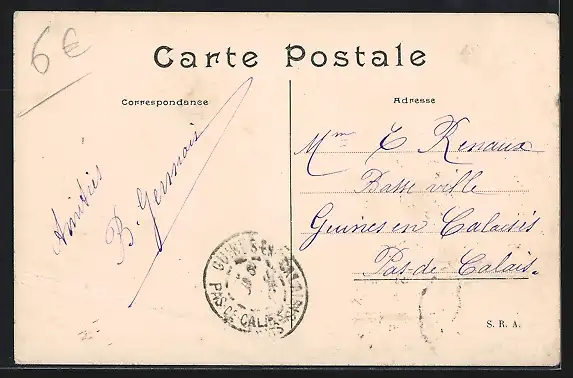 6€
Carte Postale
Correspondance
Adresse
Amitiés
B. Germais
Mme E Renaux
Basse ville
Guines en Calaisis
Pas-de-Calais.
GUINES-EN-CALAISIS
PAS DE CALAIS
S. R. A.